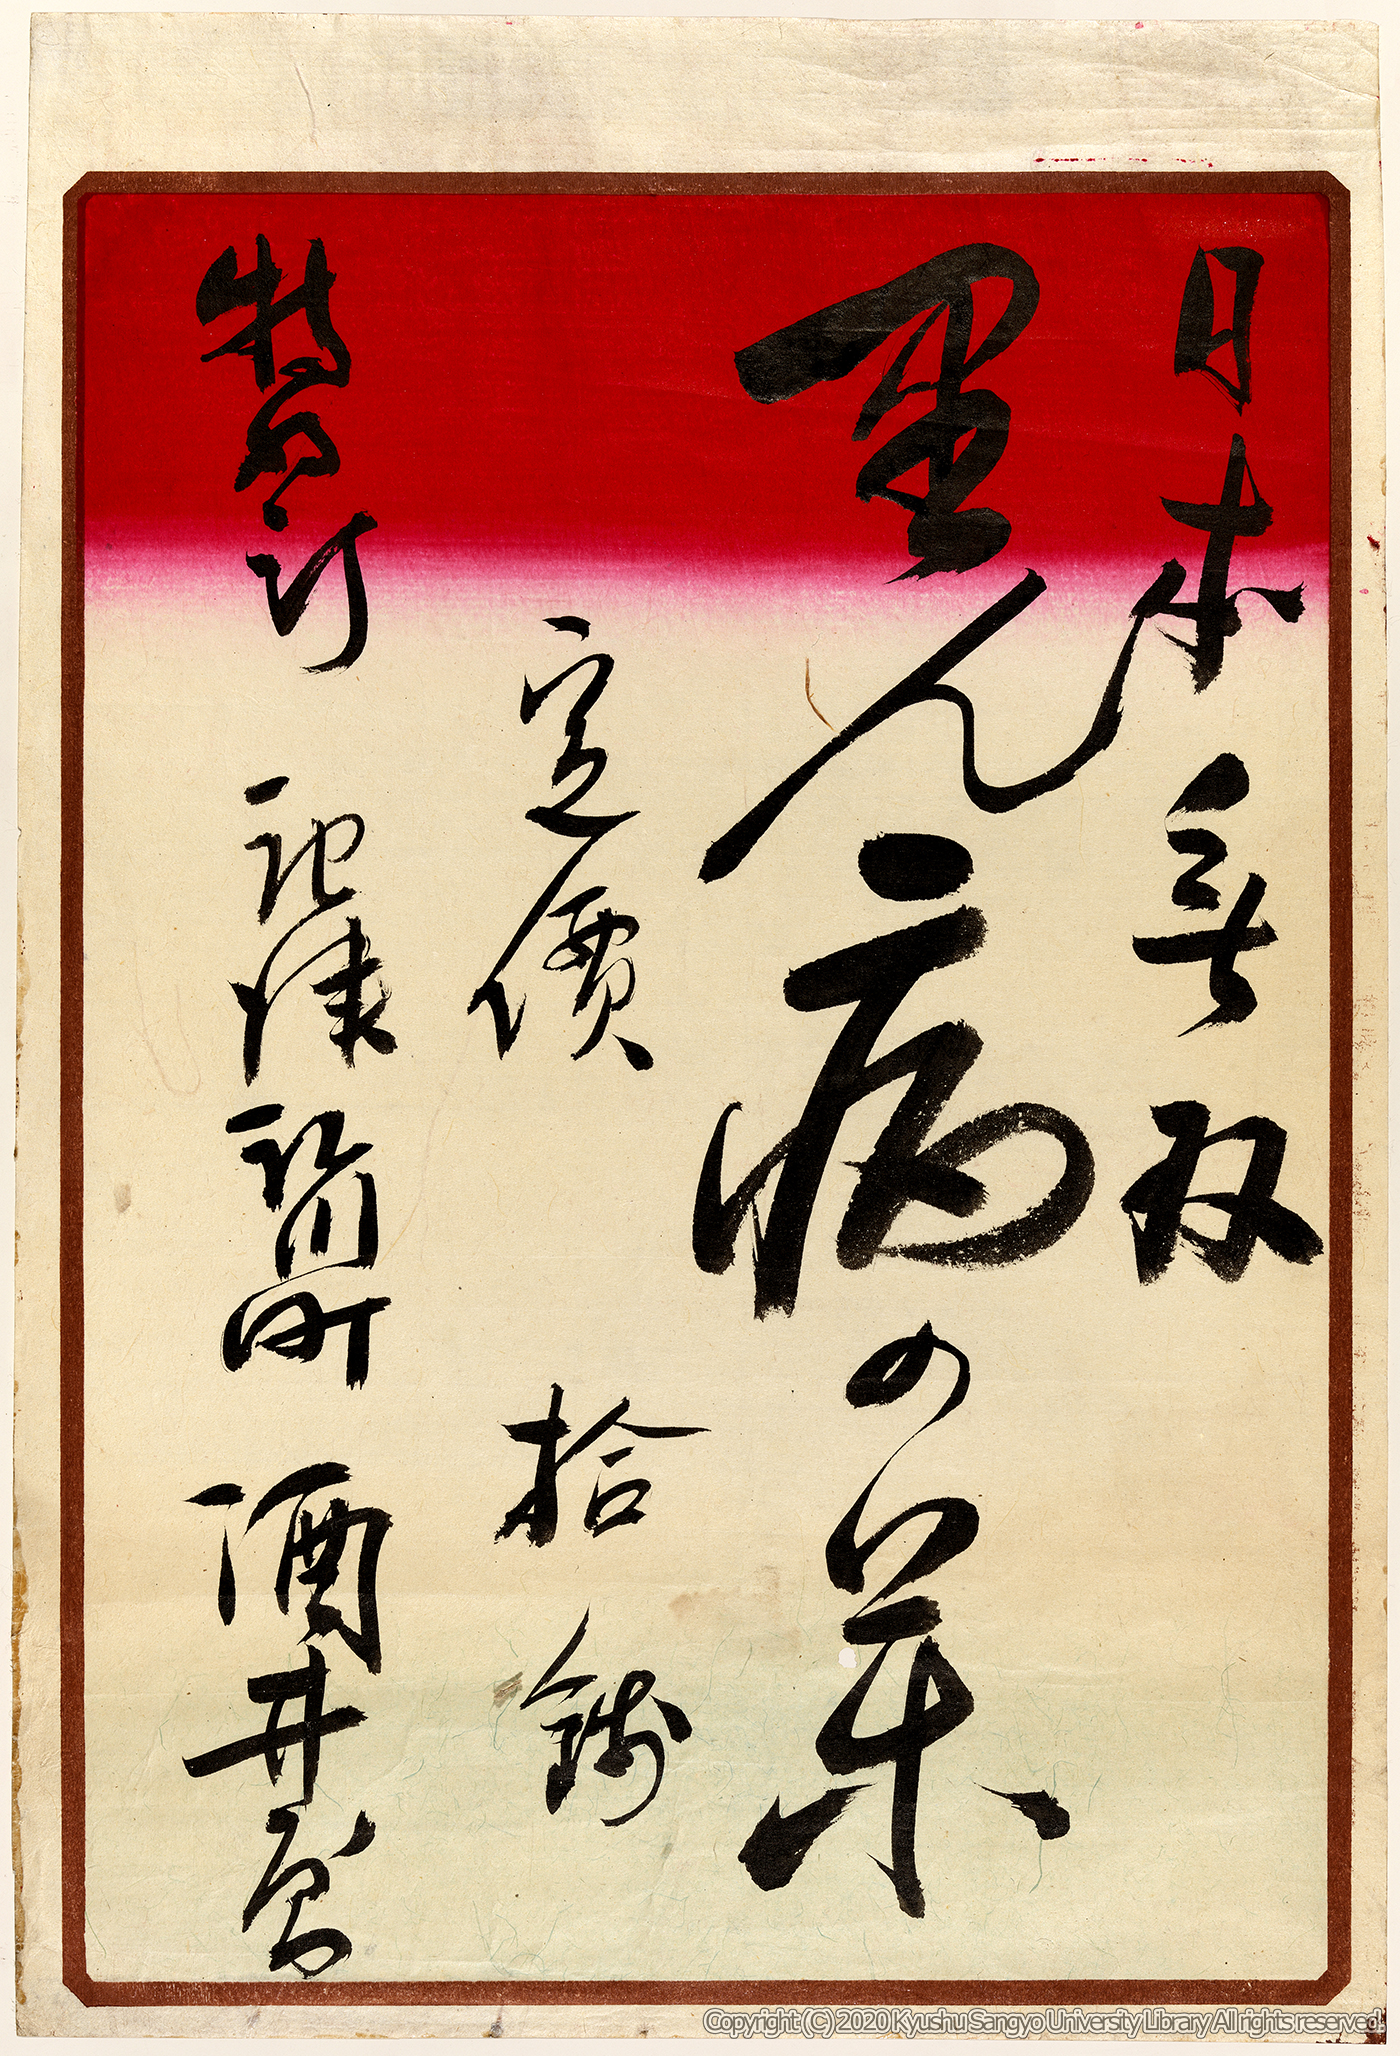 日本無双
里ん病の薬
定價 拾錢
町 酒井屋
Copyright (C) 2020 Kyushu Sangyo University Library All rights reserved.